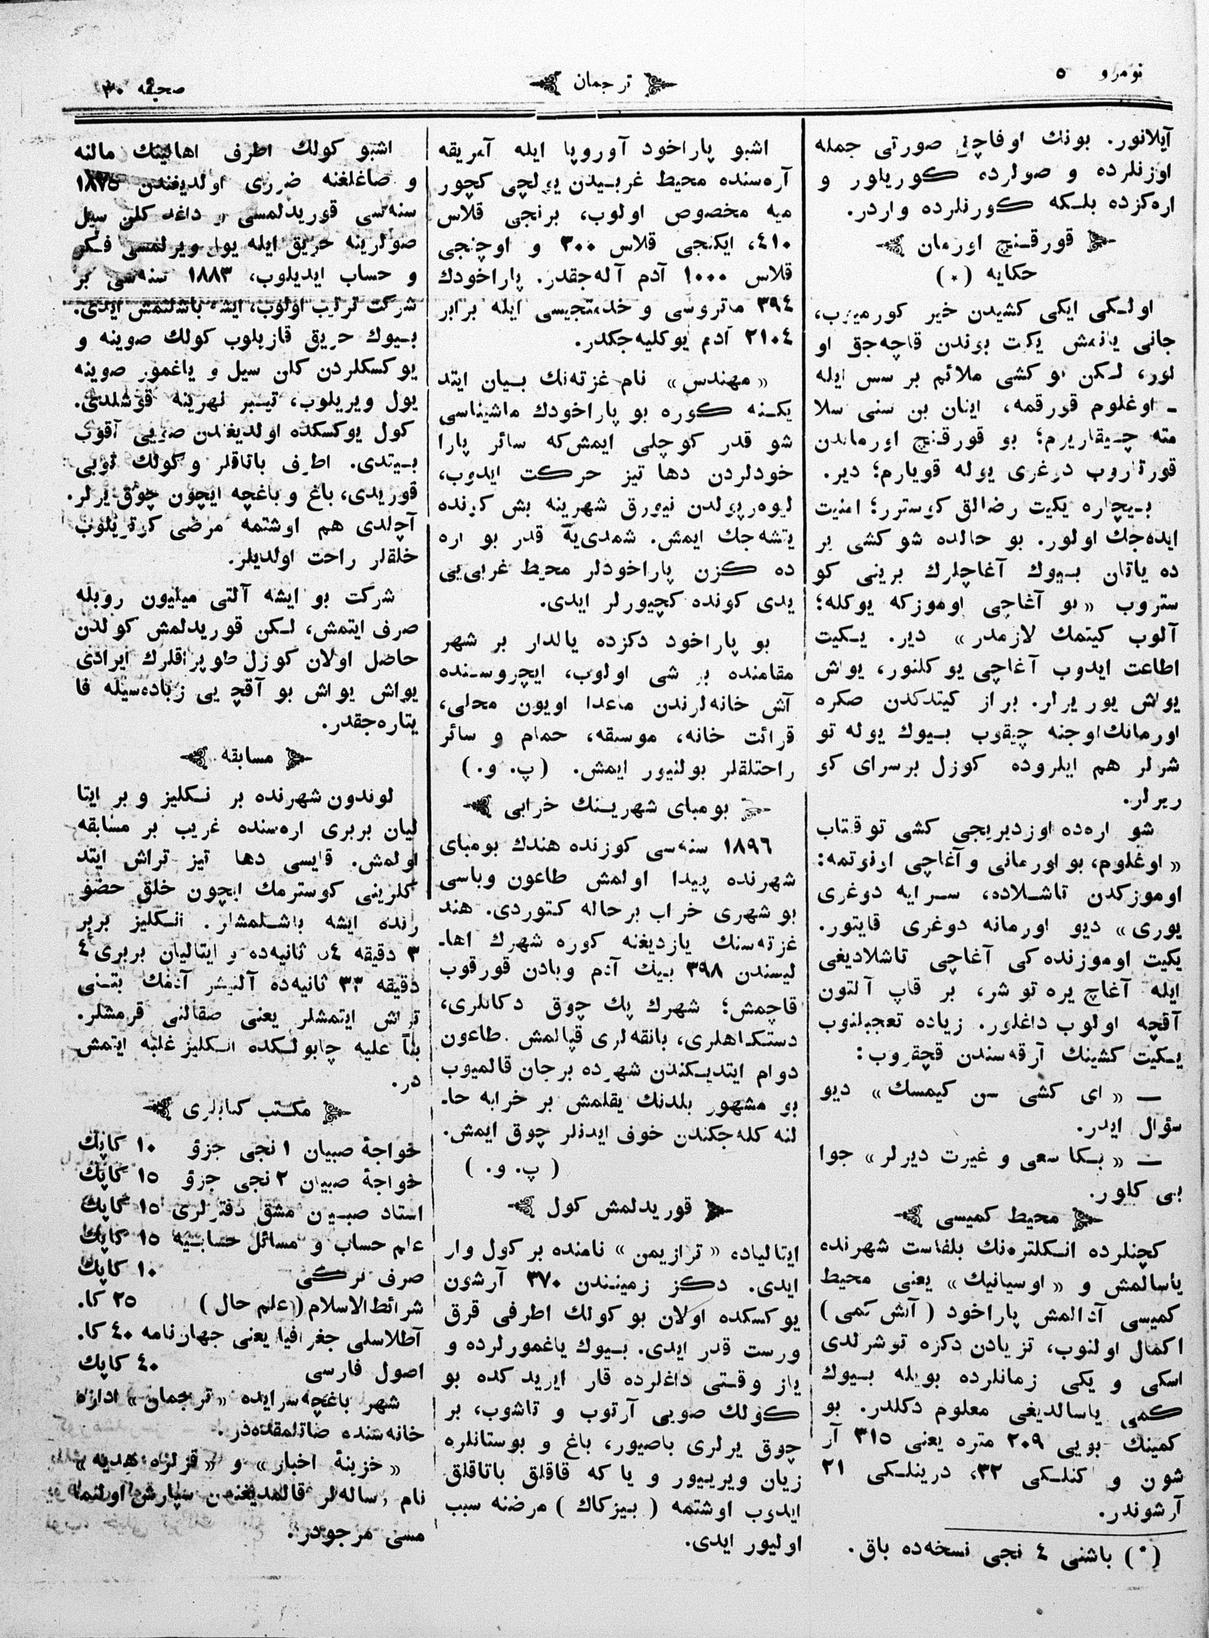 نومرو ٥
ترجمان
صحیفه ٣٠
آیلانور. بونك اوفاجی صورتی جمله
اوزنلرده و صولرده كوریلور و
اره‌كزده بلكه كورنلرده واردر.
قورقنچ اورمان
حكایه (٠)
اولكی ایكی كشیدن خیر كورمیوب،
جانی یانمش یكت بوندن قاچه‌جق او
لور، لكن بو كشی ملائم بر سس ایله
ـ اوغلوم قورقمه، اینان بن سنی سلا
مته چیقاریرم؛ بو قورقنچ اورماندن
قورتاروب دوغری یوله قویارم؛ دیر.
بیچاره یكیت رضالق كوسترر؛ امنیت
ایده‌جك اولور. بو حالده شو كشی یر
ده یاتان بیوك آغاچلرك برینی كو
ستروب «بو آغاچی اوموزكه یوكله؛
آلوب كیتمك لازمدر» دیر. یكیت
اطاعت ایدوب آغاچی یوكلنور، یواش
یواش یوریرلر. براز كیتدكدن صكره
اورمانك‌اوجنه چیقوب بیوك یوله تو
شرلر هم ایلروده كوزل برسرای كو
ریرلر.
شو اره‌ده اوزدیریجی كشی توقتاب
«اوغلوم، بو اورمانی و آغاچی اونوتمه:
اوموزكدن تاشلاده، سرایه دوغری
یوری» دیو اورمانه دوغری قایتور.
یكیت اوموزنده‌كی آغاچی تاشلادیغی
ایله آغاچ یره توشر، بر قاپ آلتون
آقچه اولوب داغلور. زیاده تعجبلنوب
یكیت كشینك آرقه‌سندن قچقروب:
— «ای كشی سن كیمسك» دیو
سؤال ایدر.
— «بكا سعی و غیرت دیرلر» جوا
بی كلور.
محیط كمیسی
كچنلرده انكلتره‌نك بلفاست شهرنده
یاسالمش و «اوسیانیك» یعنی محیط
كمیسی آتالمش پاراخود (آتش كمی)
اكمال اولنوب، تزیادن دكزه توشرلدی
اسكی و یكی زمانلرده بویله بیوك
كمی یاسالدیغی معلوم دكلدر. بو
كمینك بویی ٢٠٩ متره یعنی ٣١٥ آر
شون و كنلكی ٣٢، درینلكی ٢١
آرشوندر.
(*) باشنی ٤ نجی نسخه‌ده باق.
اشبو پاراخود آوروپا ایله آمریقه
آره‌سنده محیط غربیدن یولچی كچور
میه مخصوص اولوب، برنجی قلاس
٤١٠، ایكنجی قلاس ٣٠٠ و اوچنجی
قلاس ١٠٠٠ آدم آله‌جقدر. پاراخودك
٣٩٤ ماتروسی و خدمتجیسی ایله برابر
٢١٠٤ آدم یوكلیه‌جكدر.
«مهندس» نام غزته‌نك بیان ایتد
یكنه كوره بو پاراخودك ماشیناسی
شو قدر كوچلی ایمش‌كه سائر پارا
خودلردن دها تیز حركت ایدوب،
لیورپولدن نیورق شهرینه بش كونده
یتشه‌جك ایمش. شمدی‌یه قدر بو اره
ده كزن پاراخودلر محیط غربی‌یی
یدی كونده كچیورلر ایدی.
بو پاراخود دكزده یالدار بر شهر
مقامنده بر شی اولوب، ایچروسنده
آش خانه‌لرندن ماعدا اویون محلی،
قرائت خانه، موسیقه، حمام و سائر
راحتلقلر بولنیور ایمش. (پ. و.)
بومبای شهرینك خرابی
١٨٩٦ سنه‌سی كوزنده هندك بومبای
شهرنده پیدا اولمش طاعون وباسی
بو شهری خراب برحاله كتوردی. هند
غزته‌سنك یازدیغنه كوره شهرك اها
لیسندن ٣٩٨ بیك آدم وبادن قورقوب
قاچمش؛ شهرك پك چوق دكانلری،
دستكاهلری، بانقه‌لری قپالمش. طاعون
دوام ایتدیكندن شهرده برجان قالمیوب
بو مشهور بلدنك یقلمش بر خرابه حا
لنه كله‌جكندن خوف ایدنلر چوق ایمش.
(پ. و.)
قوریدلمش كول
ایتالیاده، «ترازیمن» نامنده بركول وار
ایدی. دكز زمینندن ٣٧٠ آرشون
یوكسكده اولان بو كولك اطرفی قرق
ورست قدر ایدی. بیوك یاغمورلرده و
یاز وقتی داغلرده قار ایریدكده بو
كولك صویی آرتوب و تاشوب، بر
چوق یرلری باصیور، باغ و بوستانلره
زیان ویریور و یا كه قاقلق باتاقلق
ایدوب اوشتمه (بیزكاك) مرضنه سبب
اولیور ایدی.
اشبو كولك اطرف اهالینك مالنه
و صاغلغنه ضرری اولدیغندن ١٨٧٥
سنه‌سی قوریدلمسی و داغدن كلن سیل
صولرینه حریق ایله یول ویرلمسی فكر
و حساب ایدیلوب، ١٨٨٣ سنه‌سی بر
شركت ترتیب اولوب، ایشه باشلنمش ایدی.
بیوك حریق قازیلوب كولك صوینه و
یوكسكلردن كلن سیل و یاغمور صوینه
یول ویریلوب، تیبر نهرینه قوشلدی.
كول یوكسكده اولدیغندن صویی آقوب
بیتدی. اطرف باتاقلر و كولك توبی
قوریدی، باغ و باغچه ایچون چوق یرلر
آچلدی هم اوشتمه مرضی كوتریلوب
خلقلر راحت اولدیلر.
شركت بو ایشه آلتی میلیون روبله
صرف ایتمش، لكن قوریدلمش كولدن
حاصل اولان كوزل طوپراقلرك ایرادی
یواش یواش بو آقچه‌یی زیاده‌سیله قا
یتاره‌جقدر.
مسابقه
لوندون شهرنده بر نكلیز و بر ایتا
لیان بربری اره‌سنده غریب بر مسابقه
اولمش. قایسی دها تیز تراش ایتد
كلرینی كوسترمك ایچون خلق حضو
رنده ایشه باشلمشلر. انكلیز بربر
٣ دقیقه ٤٥ ثانیه‌ده و ایتالیان بربری ٤
دقیقه ٣٣ ثانیه‌ده آلتیشر آدمك بتنی
تراش ایتمشلر یعنی صقالنی قرمشلر.
بنآ علیه چابولكده انكلیز غلبه ایتمش
در.
مكتب كتابلری
خواجهٔ صبیان ١ نجی جزؤ ١٠ كاپك
خواجهٔ صبیان ٢ نجی جزؤ ١٥ كاپك
استاد صبیان مشق دفترلری ١٥ كاپك
علم حساب و مسائل حسابیه ١٥ كاپك
صرف تركی ١٠ كاپك
شرائط الاسلام (علم حال) ٢٥ كا.
آطلاسلی جغرافیا یعنی جهان‌نامه ٤٠ كا.
اصول فارسی ٤٠ كاپك
شهر باغچه‌سرایده «ترجمان» اداره
خانه‌سنده صاتلمقده‌در.
«خزینهٔ اخبار» و «قزلره هدیه»
نام رساله‌لر قالمدیغندن سپارش اولنما
مسی مرجودر.